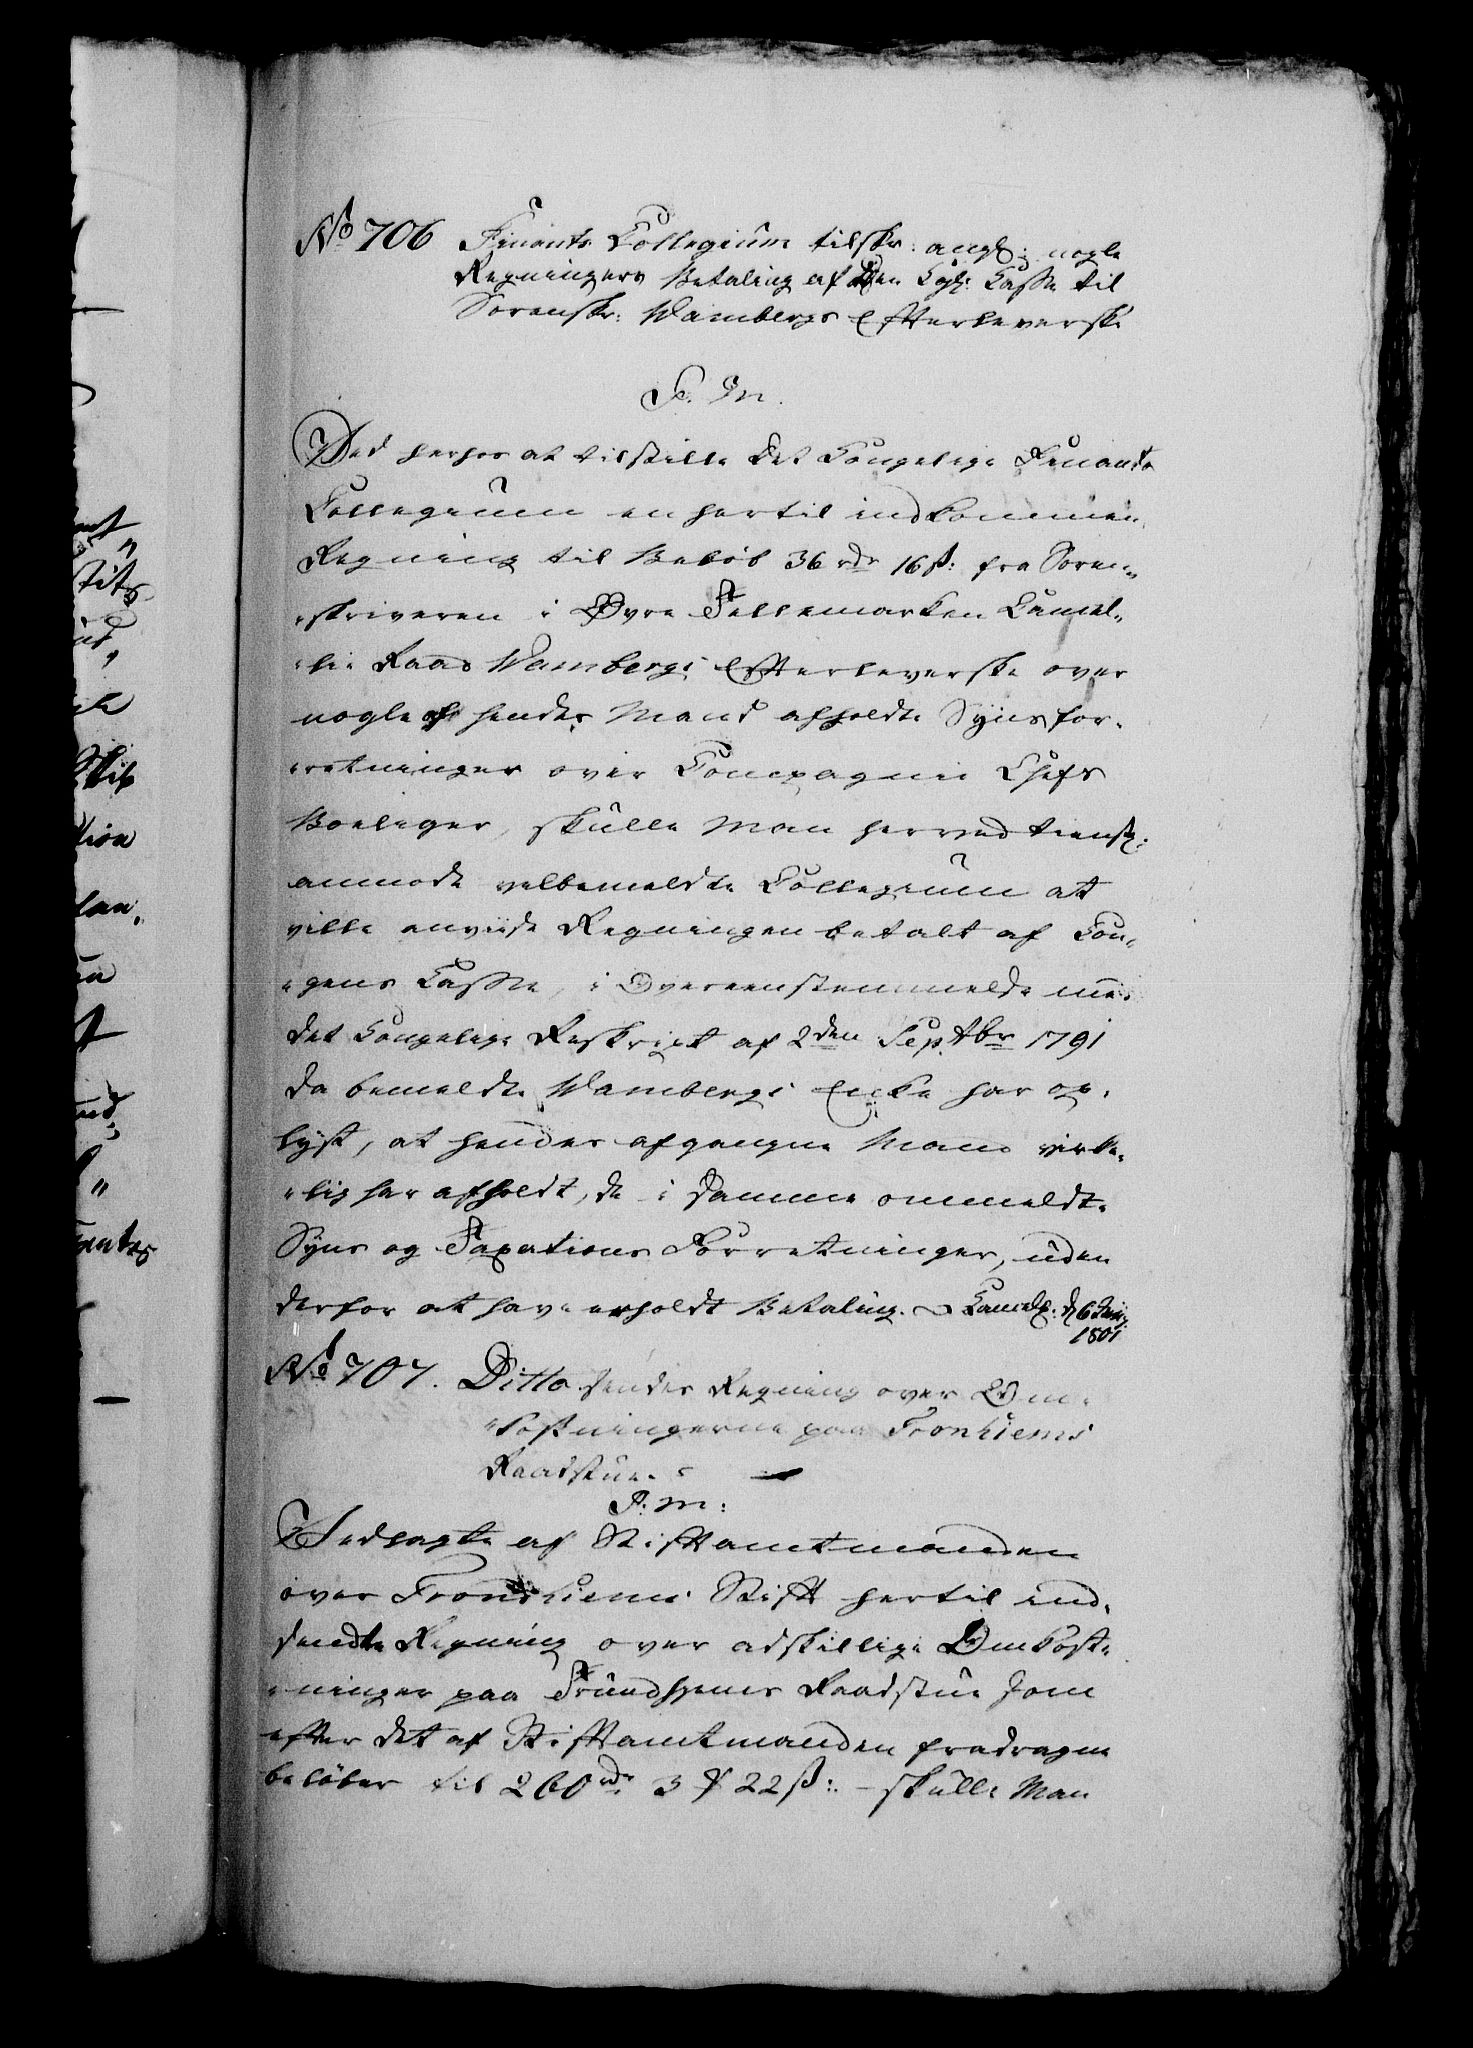 No 706 Finants Collegium tilskr: angl: nogle
Regningers Betaling af den Kgl: Casse til
Sorenskr: Wambergs Efterleverske
P. M.
Ved herhos at tilstille det Kongelige Finants
Collegium en hertil indkommen
Regning til Beløb 36 rdr 16 ß: fra Soren-
-skriveren i Øvre Tellemarken Cancel-
-lie Raad Wambergs Efterleverske over
nogle af hendes Mand afholdte Synsfor-
-retninger over Compagnie Chefs
Boeliger, skulle Man herved tienstl:
anmode velbemeldte Collegium at
ville anviise Regningen betalt af Kon-
-gens Casse, i Overeenstemmelse med
det Kongelige Reskript af 2den Septbr 1791
da bemeldte Wambergs Encke har op-
lyst, at hendes afgangne Mand virke-
-lig har afholdt, de i samme ommeldte
Syns og Taxations Forretninger, uden
derfor at have erholdt Betaling. Cancelp: d 6 Juny
1801
No 707. Ditto sendes Regning over Om-
-kostningerne paa Tronhiems
Raadstue.
P. M:
Vedlagte af Stiftamtmanden
over Trondhiems Stift hertil ind-
sendte Regning over adskillige Omkost-
-ninger paa Trundhjems Raadstue som
efter det af Stiftamtmanden fradragne
beløber til 260 rdr 3 # 22 ß: - skulle Man